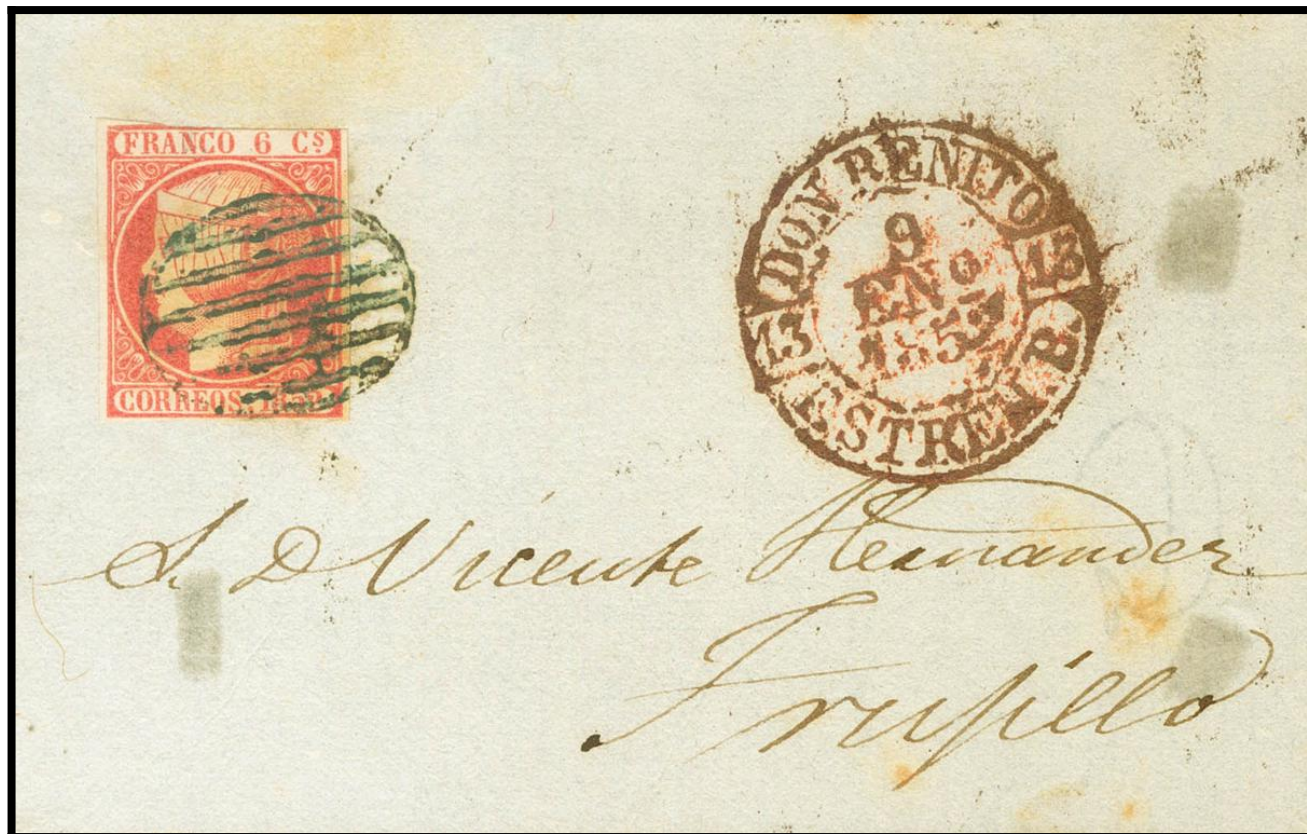 FRANCO 6 Cs
CORREOS. 1852
DON BENITO
13 13
9
ENO
1853
ESTREM. B.
S. D Vicente Hernandez
Trujillo